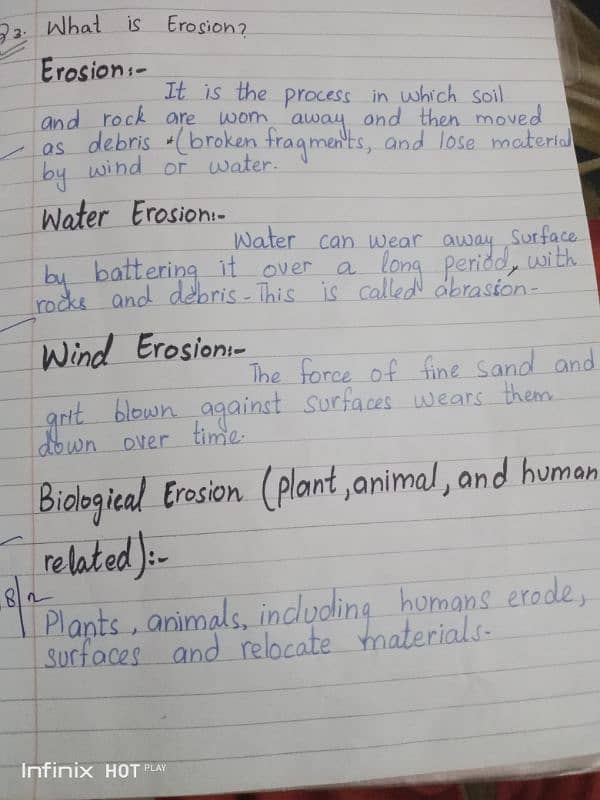 Q3. What is Erosion?
Erosion:-
It is the process in which soil
and rock are worn away and then moved
as debris (broken fragments, and lose material
by wind or water.
Water Erosion:-
Water can wear away surface
by battering it over a long period, with
rocks and debris - This is called abrasion-
Wind Erosion:-
The force of fine sand and
grit blown against surfaces wears them
down over time.
Biological Erosion (plant, animal, and human
related):-
8/2
Plants, animals, including humans erode,
surfaces and relocate materials-
Infinix HOT PLAY